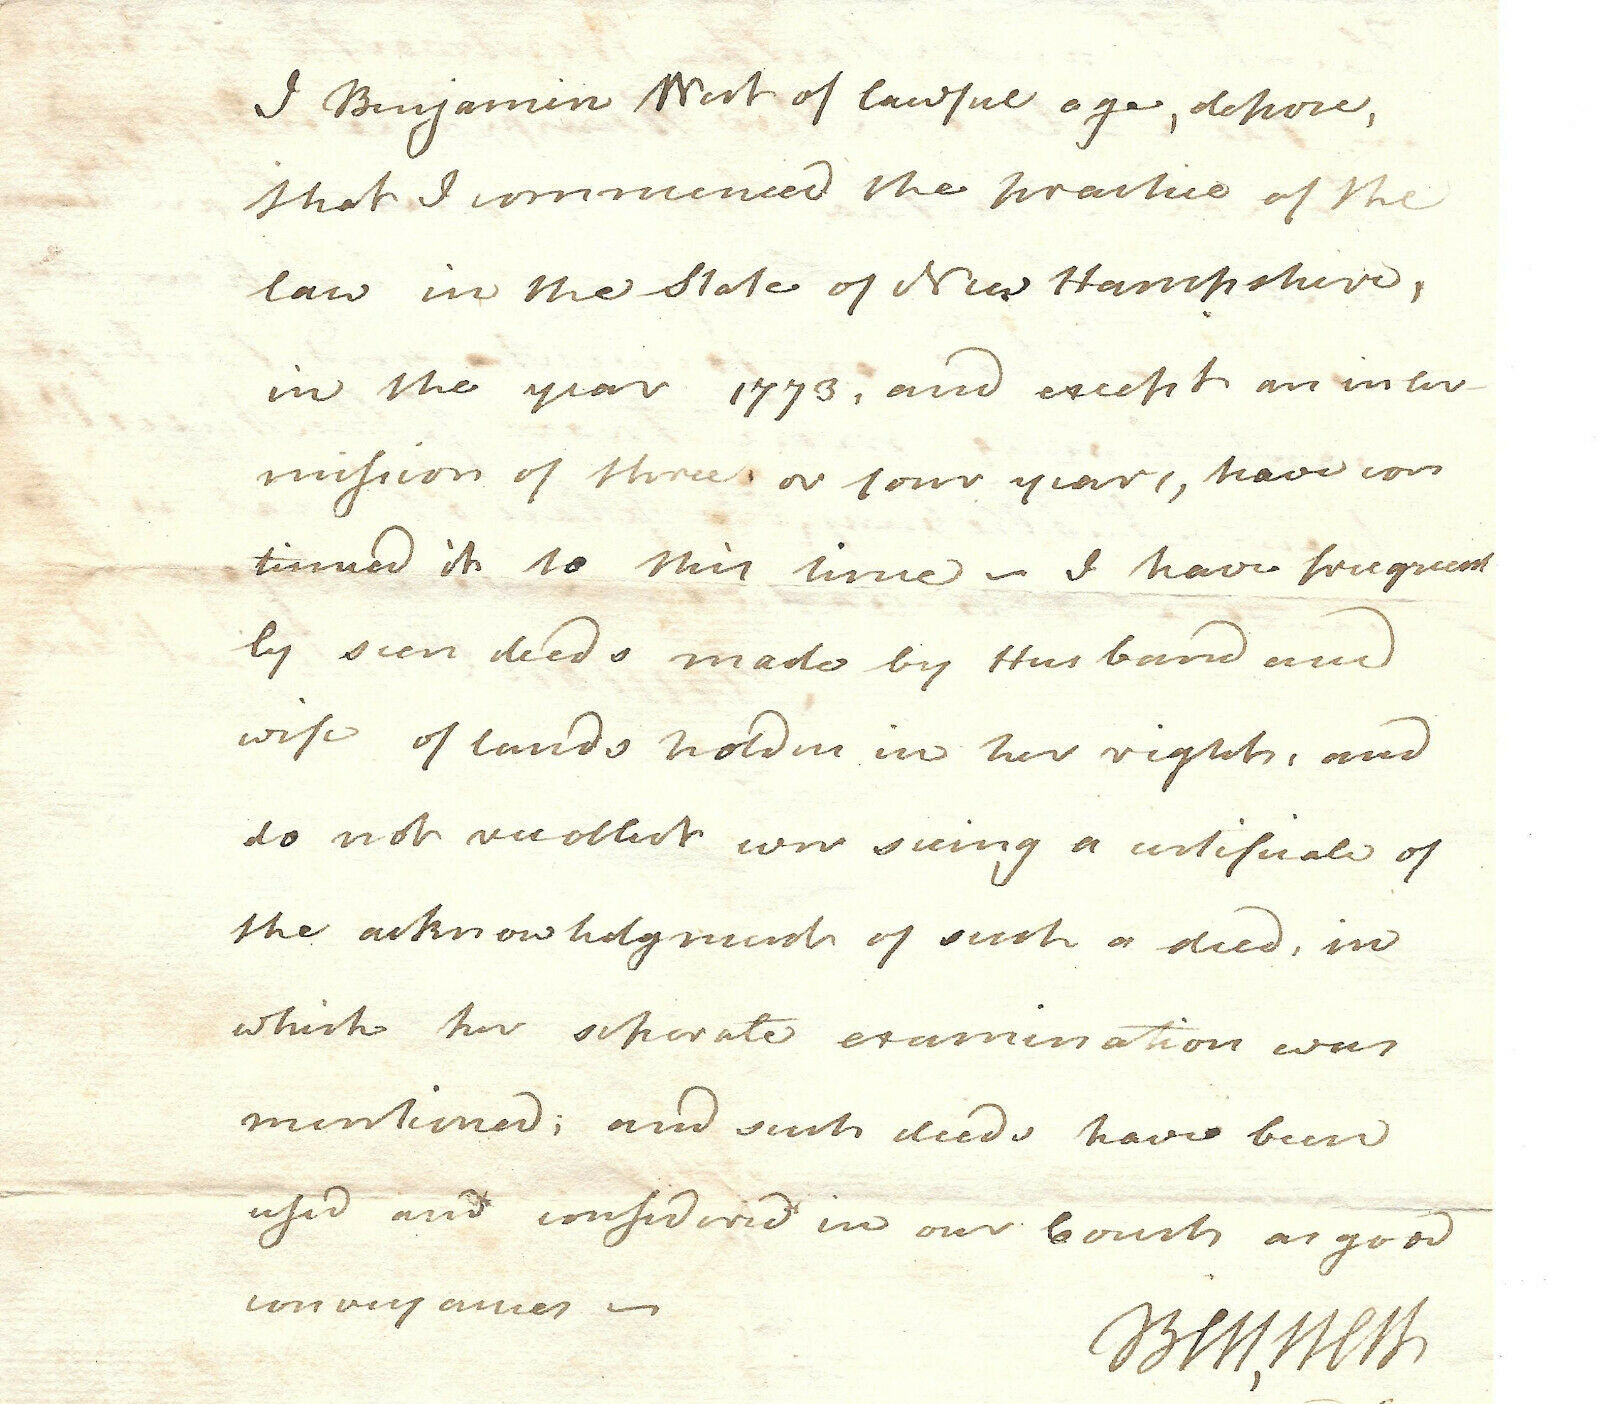 I Benjamin West of lawful age, depose,
that I commenced the practice of the
law in the State of New Hampshire,
in the year 1773, and except an inter-
mission of three or four years, have con
tinued it to this time – I have frequent
ly seen deeds made by Husband and
wife of lands holden in her right, and
do not recollect ever seeing a certificate of
the acknowledgment of such a deed, in
which her seperate examination was
mentioned; and such deeds have been
used and considered in our Courts as good
conveyances –
Ben, West